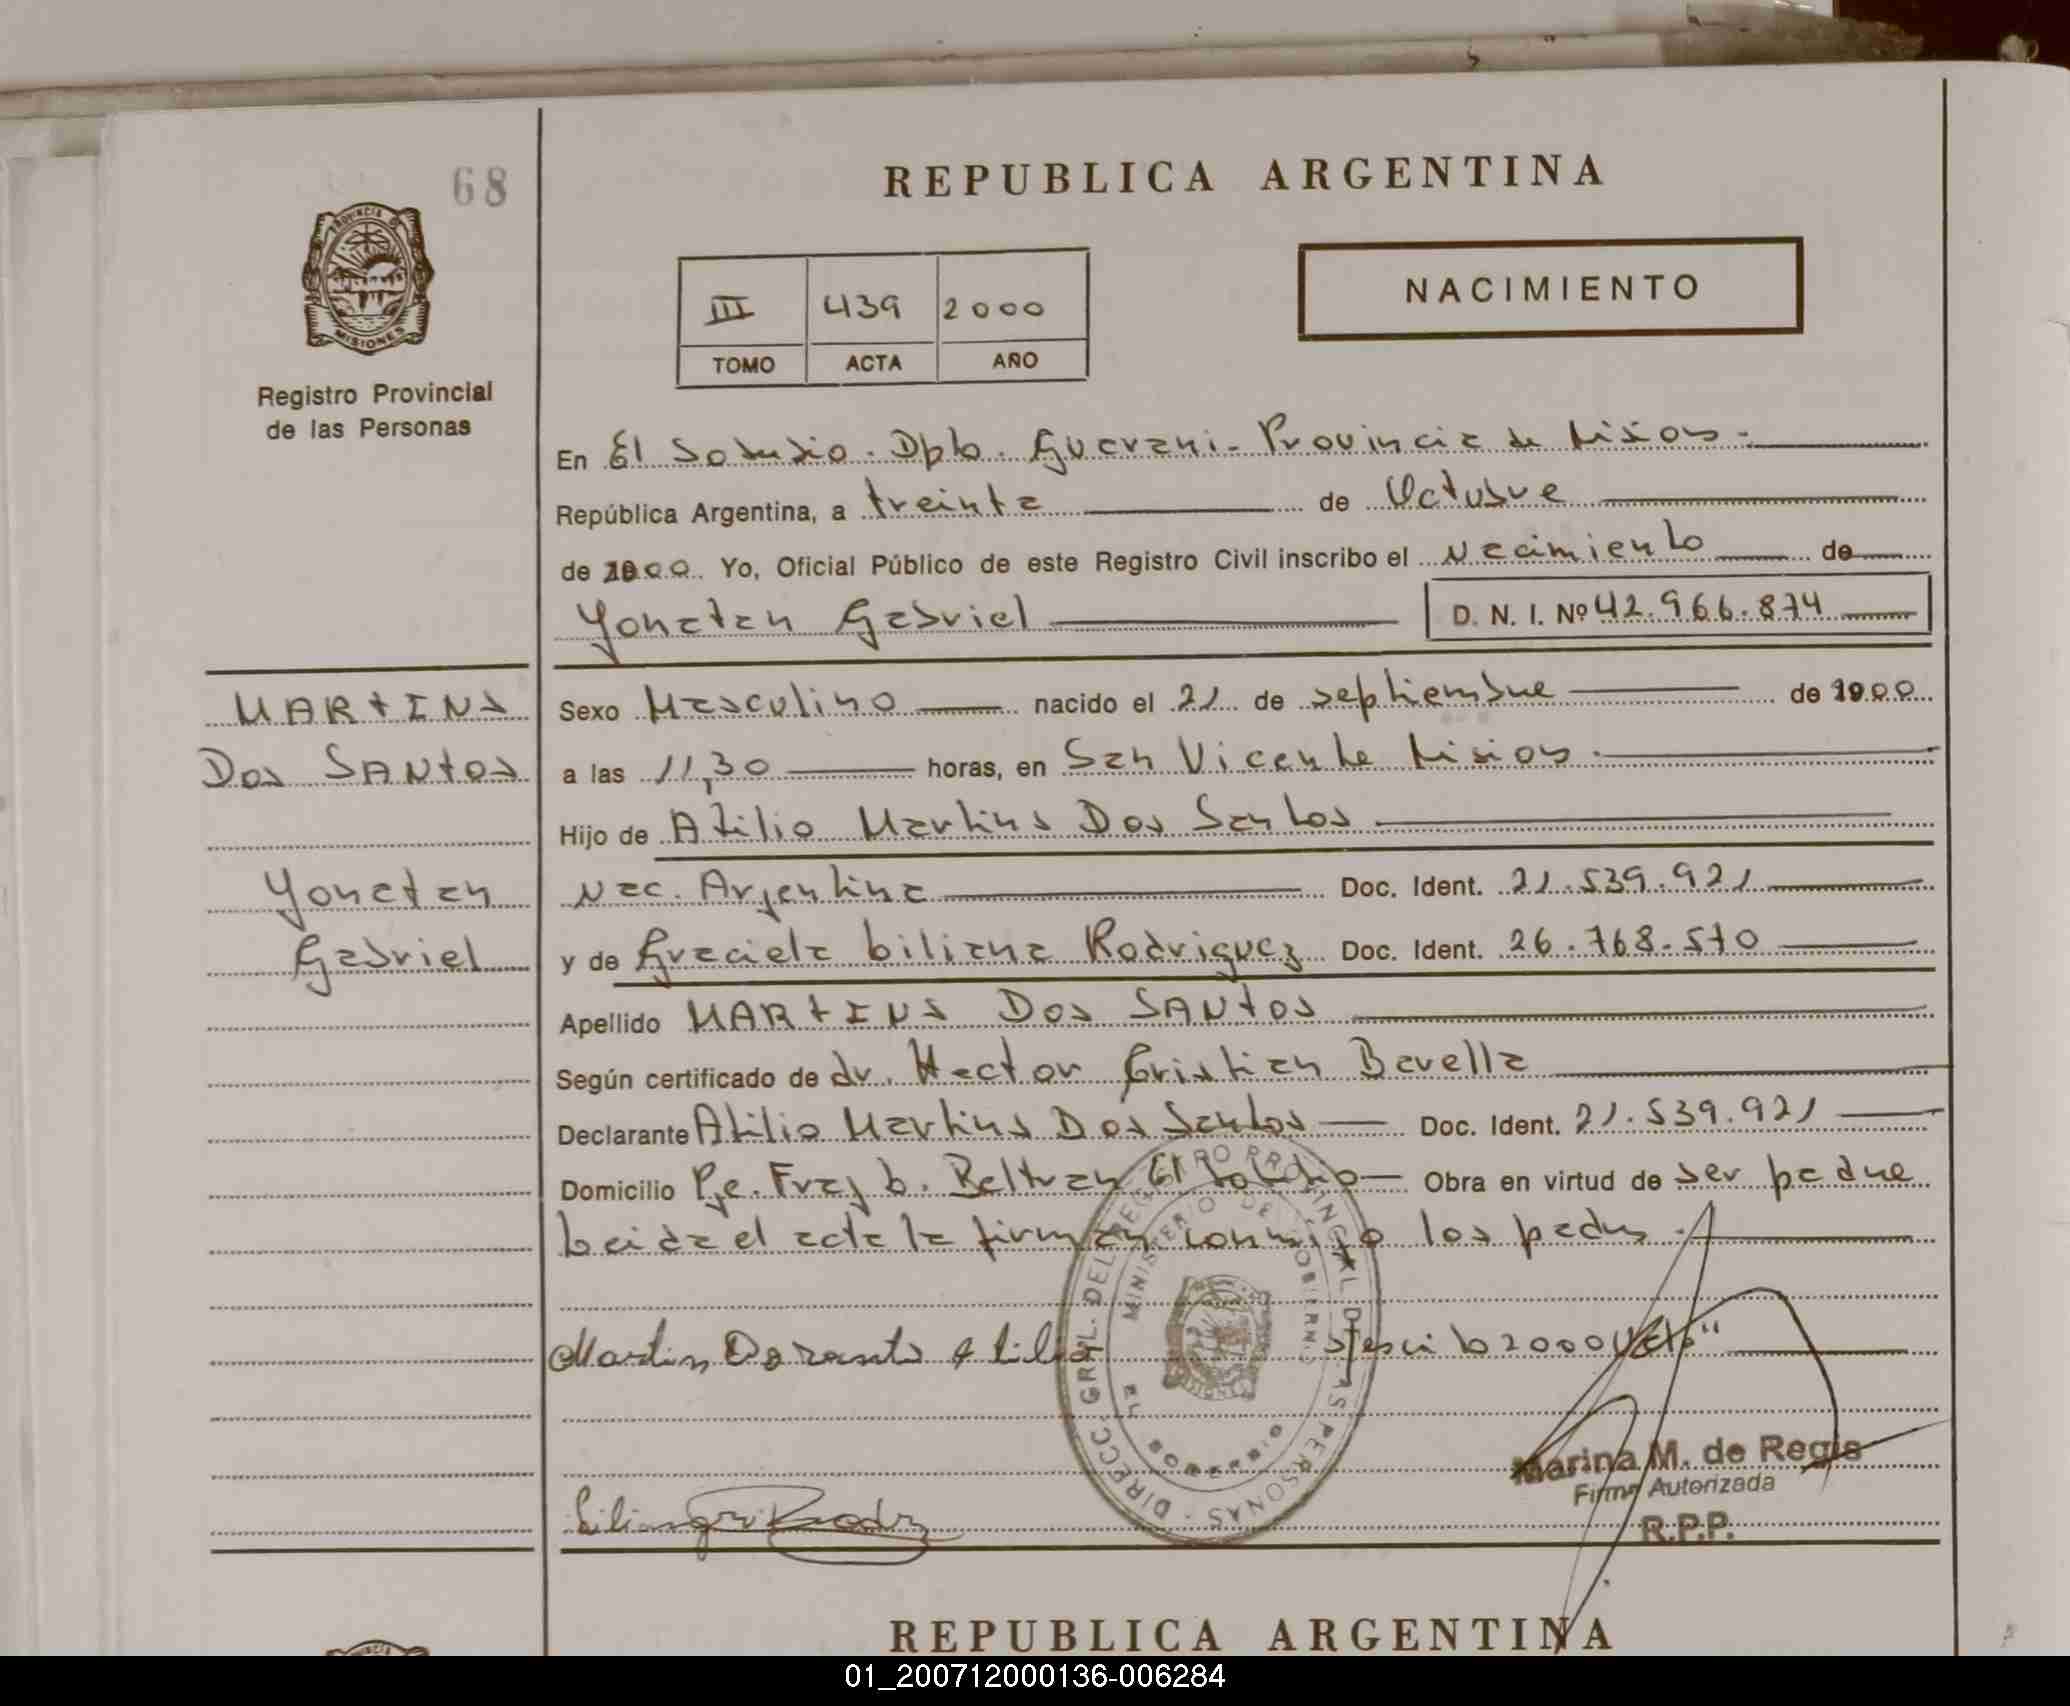 68
REPUBLICA ARGENTINA
PROVINCIA DE
MISIONES
Registro Provincial
de las Personas
NACIMIENTO
III 439 2000
TOMO ACTA AÑO
En El Soberbio. Dpto. Guarani. Provincia de Misiones.
República Argentina, a treinta de Octubre
de 2000. Yo, Oficial Público de este Registro Civil inscribo el Nacimiento de
Yonatan Gabriel D. N. I. Nº 42.966.874
MARTINS
Dos SANtos
Yonatan
Gabriel
Sexo Masculino nacido el 21 de septiembre de 2000
a las 11,30 horas, en San Vicente Misiones.
Hijo de Atilio Martins Dos Santos
Nac. Argentina Doc. Ident. 21.539.921
y de Graciela Liliana Rodriguez Doc. Ident. 26.768.570
Apellido MARTINS Dos SANtos
Según certificado de dr. Hector Cristian Barella
Declarante Atilio Martins Dos Santos Doc. Ident. 21.539.921
Domicilio Pje. Fray L. Beltran El Soberbio Obra en virtud de ser padre
Leida el acta la firman conmigo los padres.
Martins Dos santos Atilio 2000
DIRECC. GRAL. DEL REGISTRO PROVINCIAL DE LAS PERSONAS
MINISTERIO DE GOBIERNO
EL SOBERBIO
Marina M. de Regis
Firma Autorizada
R.P.P.
REPUBLICA ARGENTINA
01_200712000136-006284